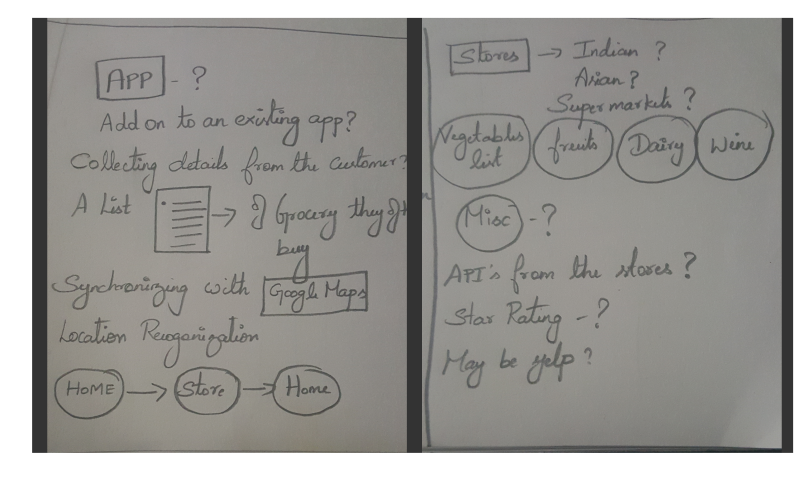 APP - ?
Add on to an existing app?
Collecting details from the customer?
A List → of Grocery they oft
buy
Synchronizing with Google Maps
Location
HOME → Store → Home
Stores → Indian ?
Asian ?
Supermarkets ?
Vegetables list fruits Dairy Wine
Misc - ?
API's from the stores ?
Star Rating - ?
May be yelp ?